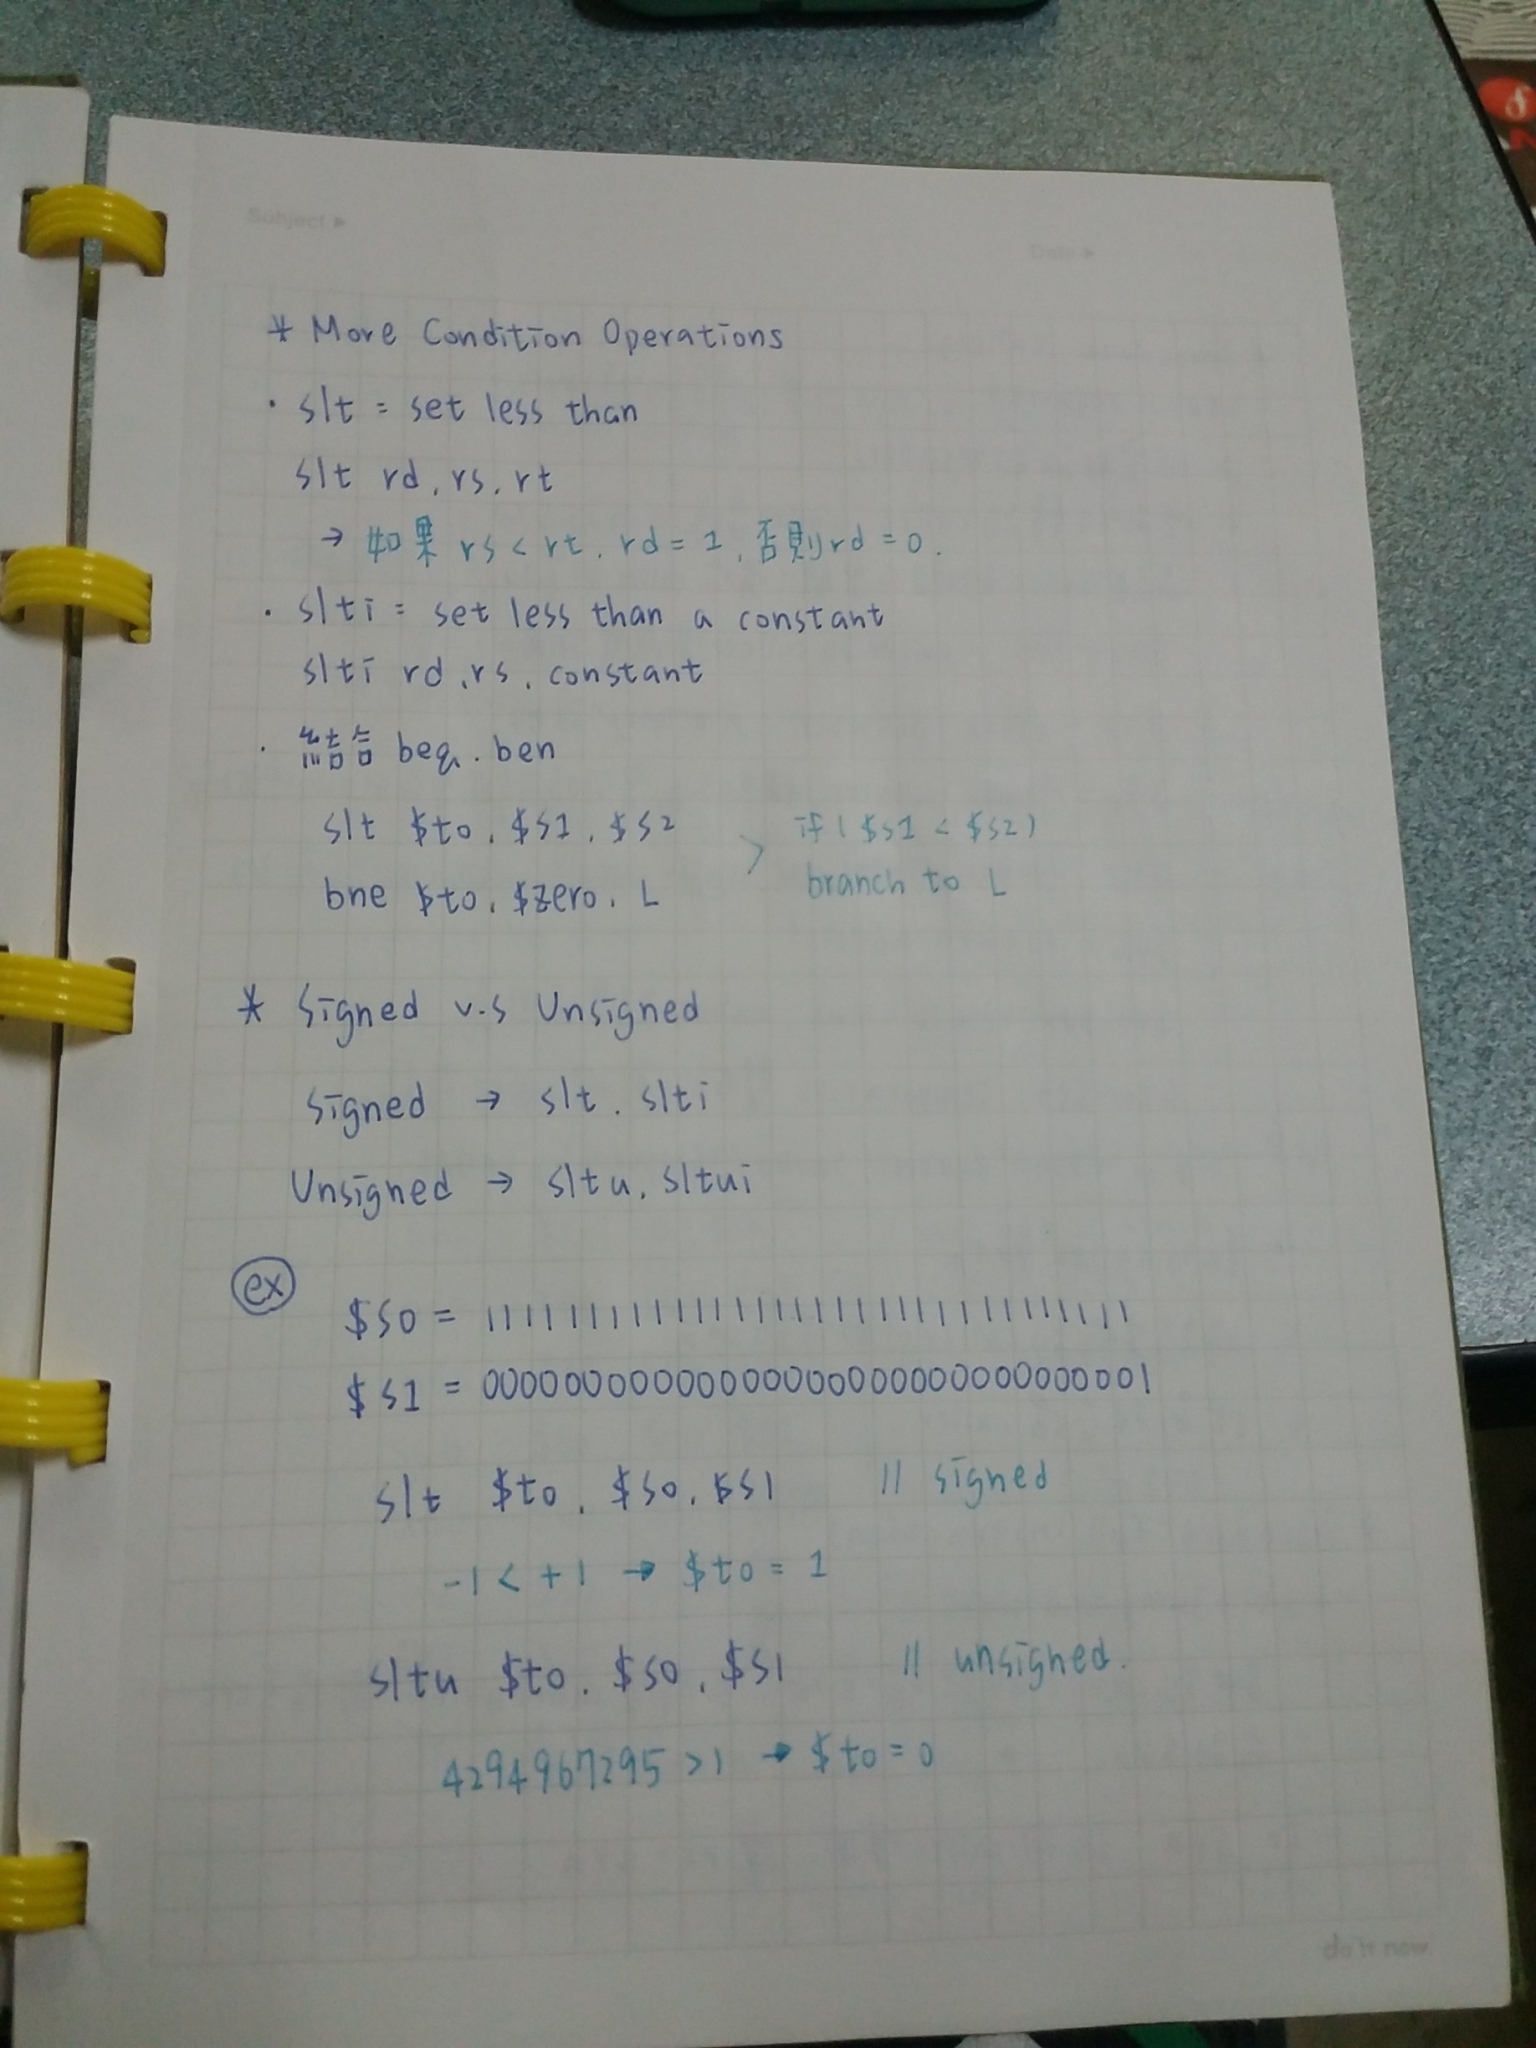 Subject ▶
Date ▶
* More Condition Operations
· slt = set less than
slt rd, rs, rt
→ 如果 rs < rt, rd = 1, 否則 rd = 0.
· slti = set less than a constant
slti rd, rs, constant
· 結合 beq, ben
slt $t0, $s1, $s2 > if ( $s1 < $s2 )
bne $t0, $zero, L branch to L
* Signed v.s Unsigned
Signed → slt, slti
Unsigned → sltu, sltui
ex
$s0 = 11111111111111111111111111111111
$s1 = 00000000000000000000000000000001
slt $t0, $s0, $s1 // signed
-1 < +1 → $t0 = 1
sltu $t0, $s0, $s1 // unsigned.
4294967295 > 1 → $t0 = 0
do it now